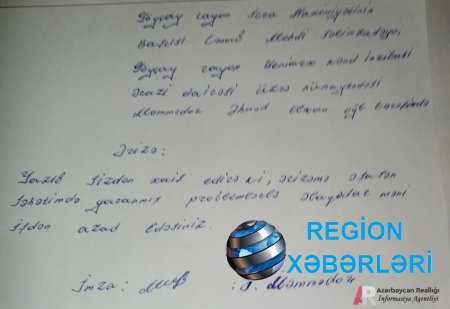 Göyçay rayon İcra Hakimiyyətinin
Başçısı Cənab Mehdi Səlimzadəyə,
Göyçay rayon kənd inzibati
Ərazi dairəsi üzrə nümayəndəsi
Məmmədov Əhməd oğlu tərəfindən
Ərizə:
Yazıb Sizdən xaiş edirəm ki, ərizəmə əsasən
Səhətimdə yaranmış problemlərlə əlaqədar məni
işdən azad edəsiniz.
İmza: Ə. Məmmədov
REGION
XƏBƏRLƏRİ
Azərbaycan Reallığı
İnformasiya Agentliyi